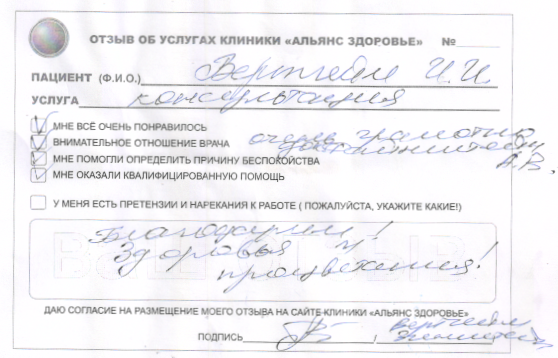 ОТЗЫВ ОБ УСЛУГАХ КЛИНИКИ «АЛЬЯНС ЗДОРОВЬЕ» №
ПАЦИЕНТ (Ф.И.О.) Вертгейм И.И.
УСЛУГА консультация
МНЕ ВСЁ ОЧЕНЬ ПОНРАВИЛОСЬ
ВНИМАТЕЛЬНОЕ ОТНОШЕНИЕ ВРАЧА очень грамотно
МНЕ ПОМОГЛИ ОПРЕДЕЛИТЬ ПРИЧИНУ БЕСПОКОЙСТВА А.В.
МНЕ ОКАЗАЛИ КВАЛИФИЦИРОВАННУЮ ПОМОЩЬ
У МЕНЯ ЕСТЬ ПРЕТЕНЗИИ И НАРЕКАНИЯ К РАБОТЕ ( ПОЖАЛУЙСТА, УКАЖИТЕ КАКИЕ!)
Благодарим!
Здоровья и
процветания!
ДАЮ СОГЛАСИЕ НА РАЗМЕЩЕНИЕ МОЕГО ОТЗЫВА НА САЙТЕ КЛИНИКИ «АЛЬЯНС ЗДОРОВЬЕ»
ПОДПИСЬ / Вертгейм